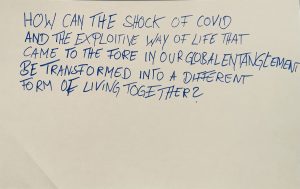 HOW CAN THE SHOCK OF COVID
AND THE EXPLOITIVE WAY OF LIFE THAT
CAME TO THE FORE IN OUR GLOBAL ENTANGLEMENT
BE TRANSFORMED INTO A DIFFERENT
FORM OF LIVING TOGETHER?